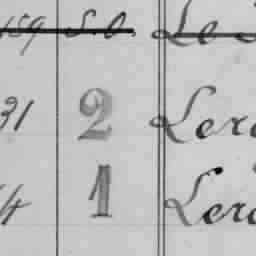 159 S.O. Le
31 2 Lero
4 1 Lero